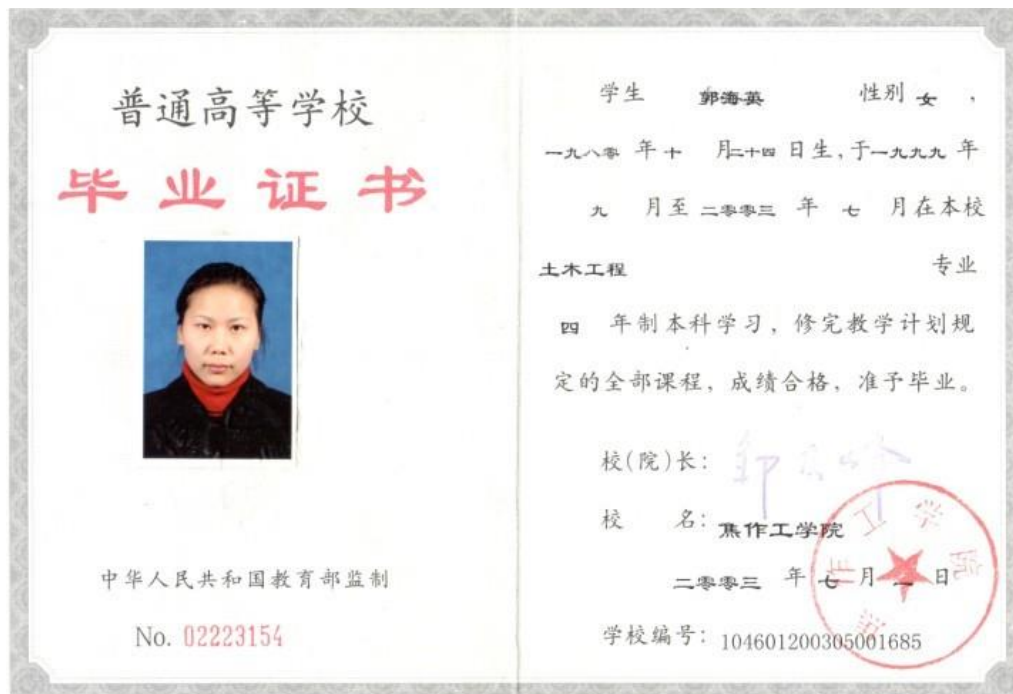 普通高等学校
毕业证书
中华人民共和国教育部监制
No. 02223154
学生 郭海英 性别 女 ,
一九八零 年 十 月 二十四 日生,于 一九九九 年
九 月至 二零零三 年 七 月在本校
土木工程 专业
四 年制本科学习, 修完教学计划规
定的全部课程, 成绩合格, 准予毕业。
校(院)长:
校 名: 焦作工学院
二零零三 年 七 月 一 日
学校编号: 104601200305001685
焦作工学院